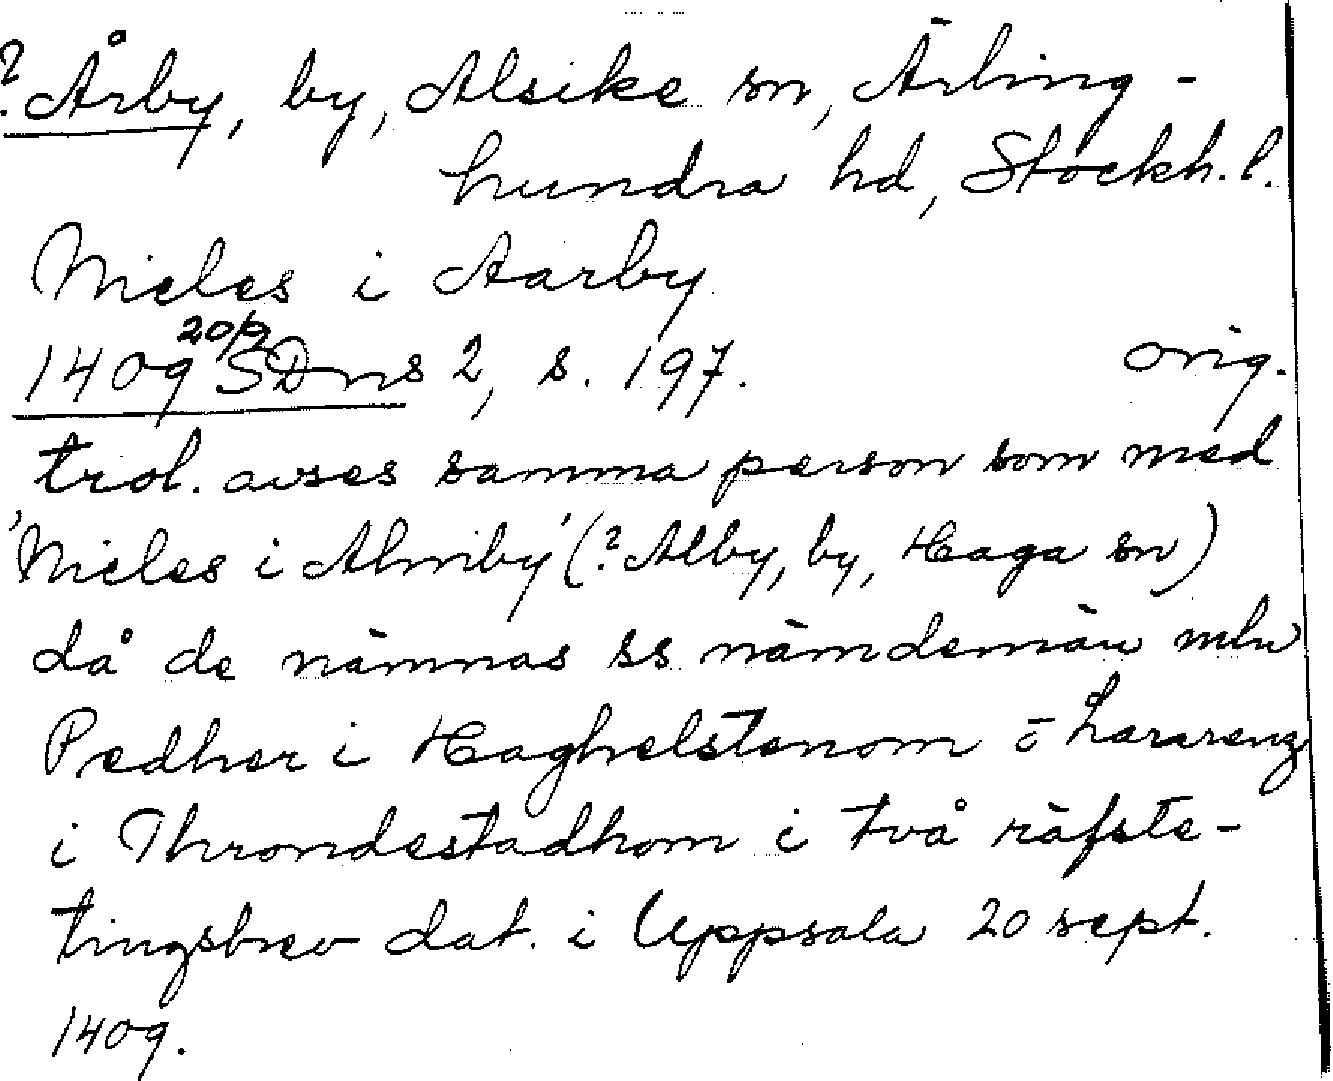 ? Årby, by, Alsike sn, Ärling-
hundra hd, Stockh. l.
Nieles i Aarby
1409 20/9 SDns 2, s. 197. orig.
trol. avses samma person som med
'Nieles i Almby' (? Alby, by, Haga sn)
då de nämnas ss nämndemän mln
Pedher i Haghelstenom o
i Throndestadhom i två räfste-
tingsbrev dat. i Uppsala 20 sept.
1409.